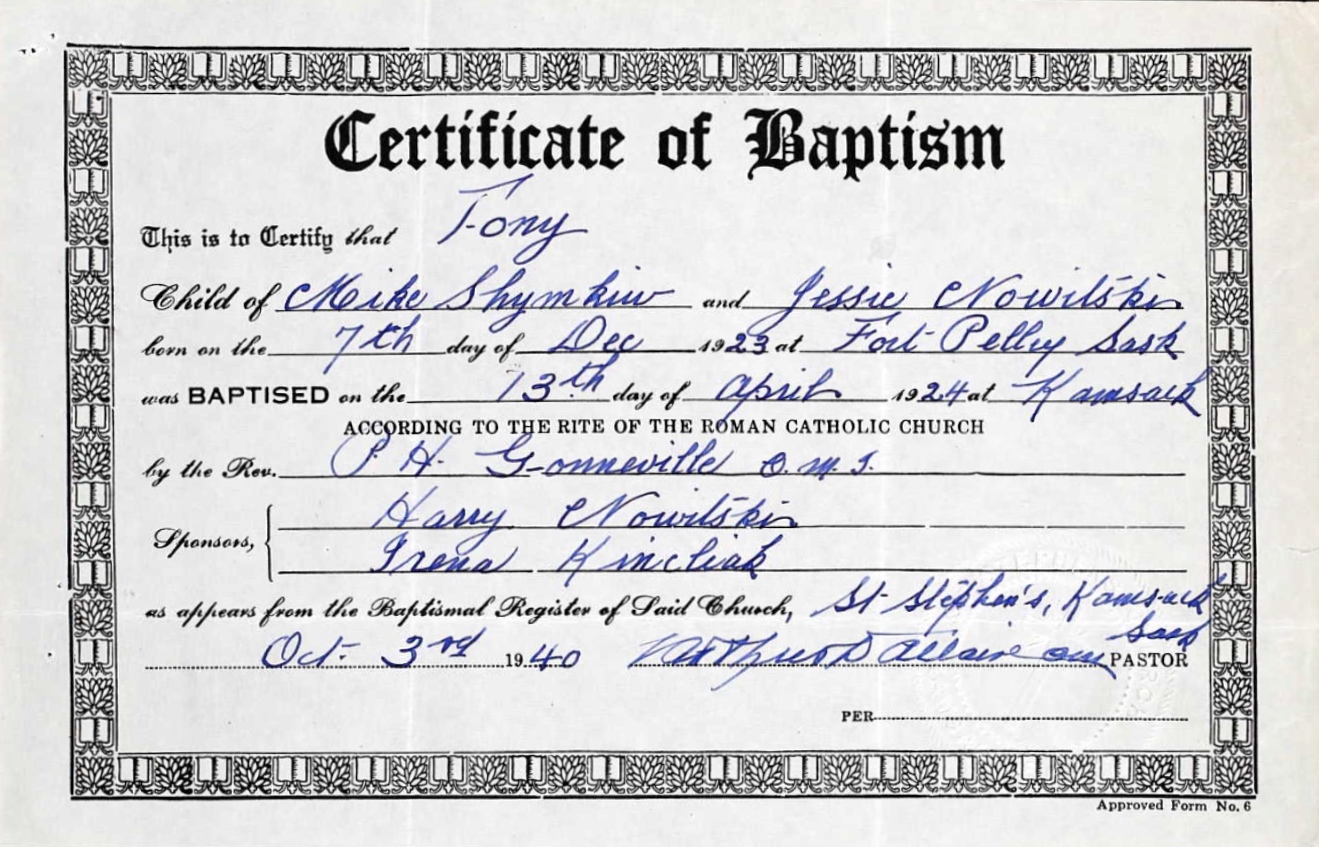 Certificate of Baptism
This is to Certify that Tony
Child of Mike Shymkiw and Jessie Nowilskin
born on the 7th day of Dec 1923 at Fort Pelley Sask
was BAPTISED on the 13th day of April 1924 at Kamsack
ACCORDING TO THE RITE OF THE ROMAN CATHOLIC CHURCH
by the Rev. P H. Gonneville O.M.I.
Sponsors, Harry Nowilskin
Irena Kincliak
as appears from the Baptismal Register of Said Church, St-Stephen's, Kamsack
Sask
Oct. 3rd 1940 Allaire omi PASTOR
PER
Approved Form No. 6